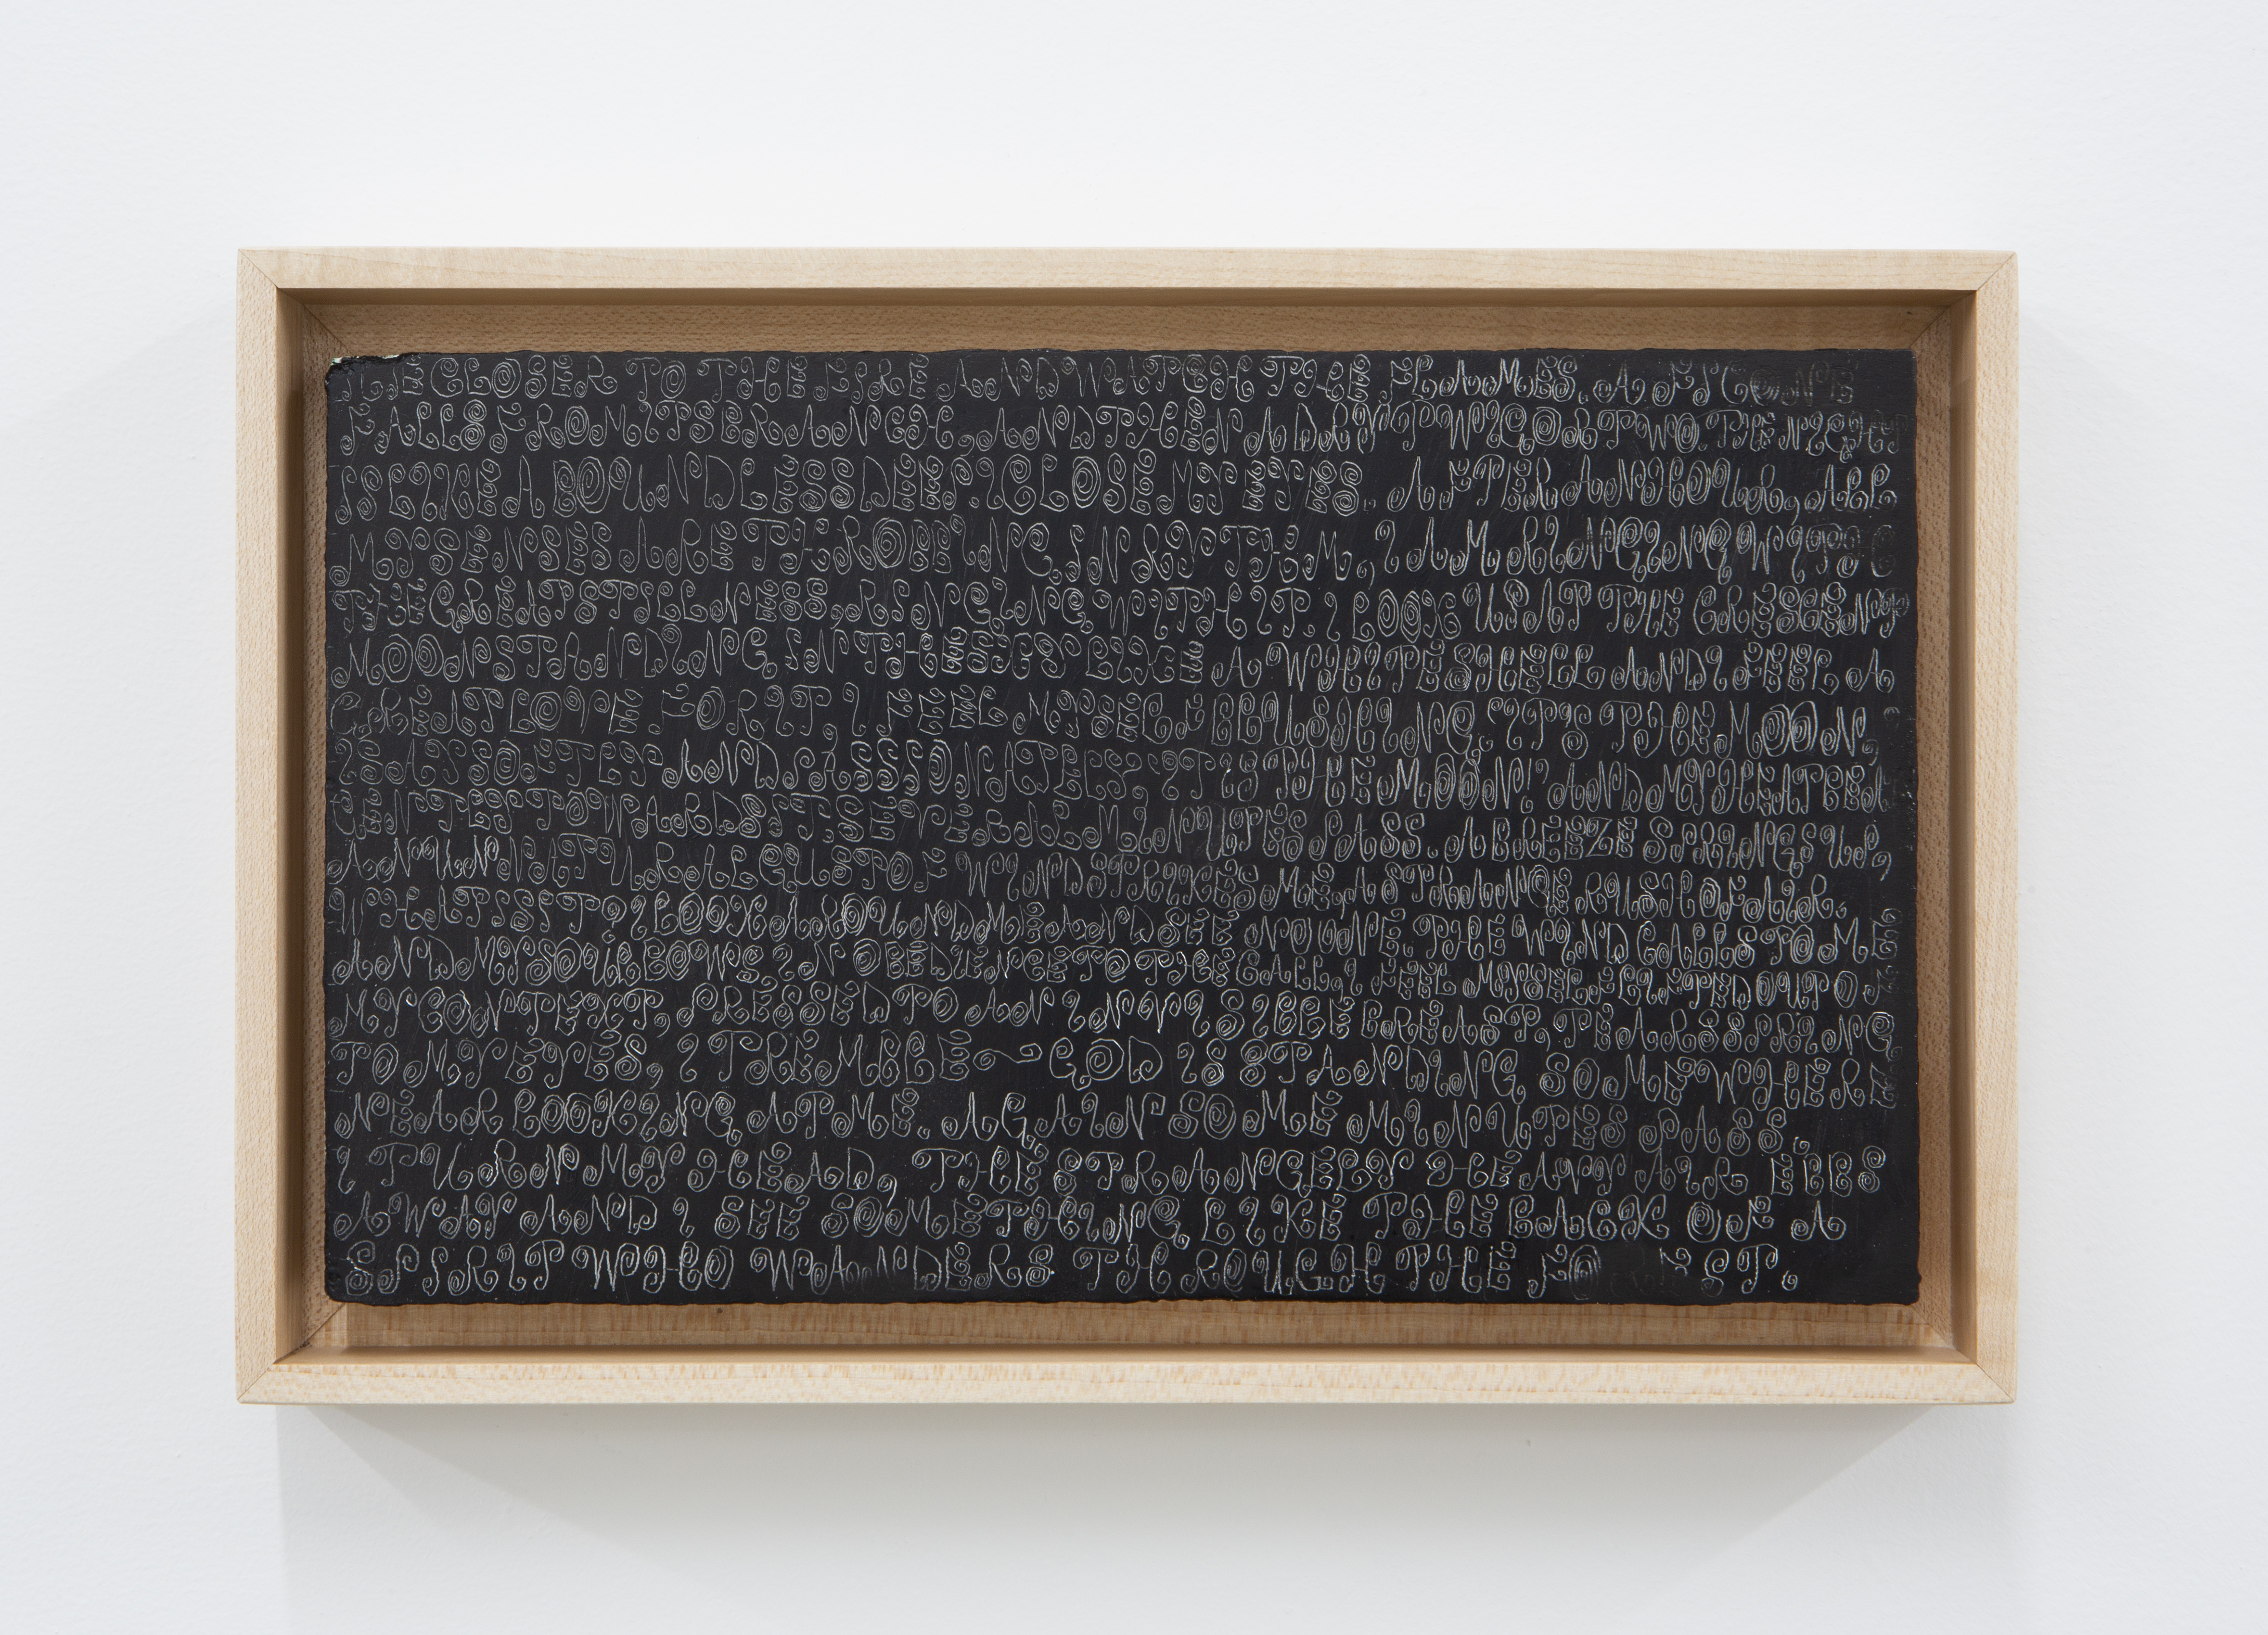 LIE CLOSER TO THE FIRE AND WATCH THE FLAMES. A FIR CONE
FALLS FROM ITS BRANCH, AND THEN A DRY TWIG OR TWO. THE NIGHT
IS LIKE A BOUNDLESS DEEP. I CLOSE MY EYES. AFTER AN HOUR, ALL
MY SENSES ARE THROBBING IN RYTHM, I AM RINGING WITH
THE GREAT STILLNESS, RINGING WITH IT. I LOOK UP AT THE CRESCENT
MOON STANDING IN THE SKY LIKE A WHITE SHELL AND I FEEL A
GREAT LOVE FOR IT, I FEEL MYSELF BLUSHING. IT IS THE MOON,
I SAY SOFTLY AND PASSIONATELY, IT IS THE MOON! AND MY HEART BEA
GENTLY TOWARDS IT. SEVERAL MINUTES PASS. A BREEZE SPRINGS UP,
AN UNNATURAL GUST OF WIND STRIKES ME, A STRANGE RUSH OF AIR.
WHAT IS IT? I LOOK AROUND ME AND SEE NO ONE. THE WIND CALLS TO ME
AND MY SOUL BOWS IN OBEDIENCE TO THE CALL, I FEEL MYSELF LIFTED OUT OF
MY CONTEXT, PRESSED TO AN INVISIBLE BREAST, TEARS SPRING
TO MY EYES, I TREMBLE - GOD IS STANDING SOMEWHERE
NEAR LOOKING AT ME. AGAIN SOME MINUTES PASS
I TURN MY HEAD, THE STRANGELY HEAVY AIR EBBS
AWAY AND I SEE SOMETHING LIKE THE BACK OF A
SPIRIT WHO WANDERS THROUGH THE FOREST.